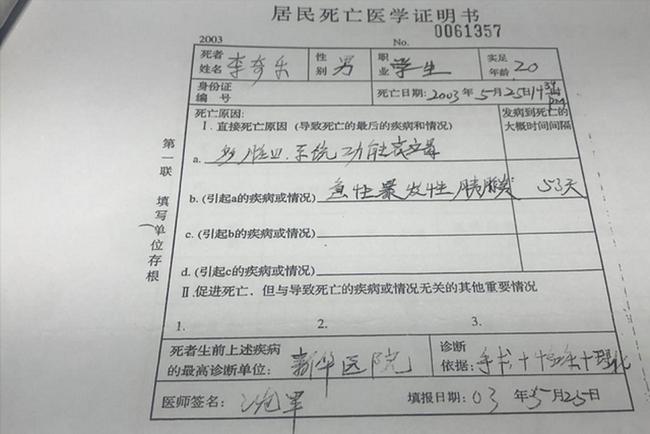 居民死亡医学证明书
2003 No. 0061357
死者姓名 李奇乐 性别 男 职业 学生 实足年龄 20
身份证编号 死亡日期: 2003 年 5 月 25 日 14
死亡原因: 发病到死亡的大概时间间隔
I. 直接死亡原因 (导致死亡的最后的疾病和情况)
a. 多脏 系统功能衰
b. (引起a的疾病或情况) 急性暴发性胰腺炎 53天
c. (引起b的疾病或情况)
d. (引起c的疾病或情况)
II 促进死亡，但与导致死亡的疾病或情况无关的其他重要情况
1. 2. 3.
死者生前上述疾病的最高诊断单位: 新华医院 诊断依据: 手术+ +理化
医师签名: 填报日期: 03 年 5 月 25 日
第一联 填写单位存根